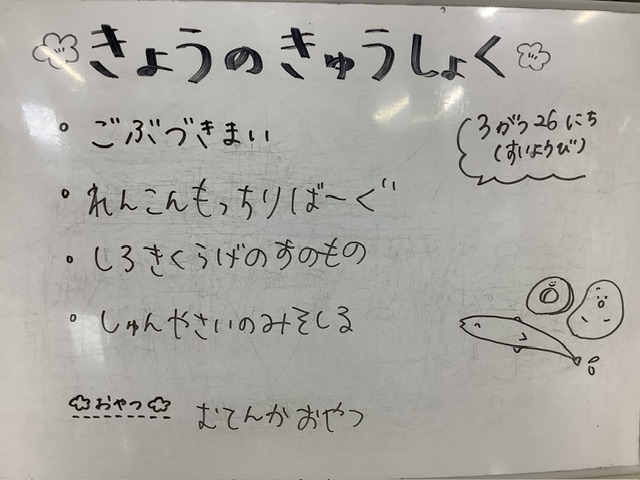 きょうのきゅうしょく
3がつ26にち
(すいようび)
ごぶづきまい
れんこんもっちりばーぐ
しろきくらげのすのもの
しゅんやさいのみそしる
おやつ
むてんかおやつ